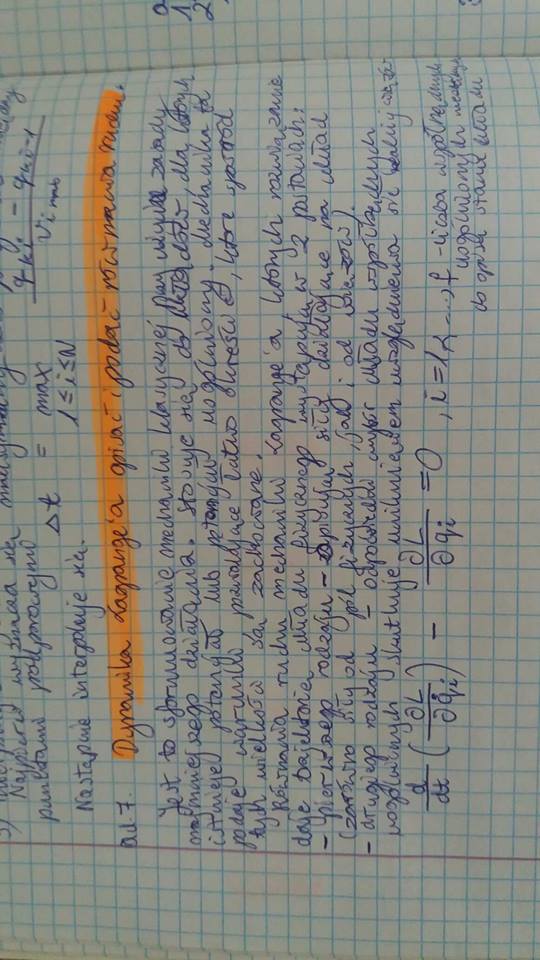 Najpierw wyznacza się
punktami podporowymi
Δt = max 1≤i≤N (q_ki − q_ki−1) / v_i max
Następnie interpoluje się.
ad.7. Dynamika Lagrange'a opisać i podać równania ruchu.
Jest to sformułowanie mechaniki klasycznej przy użyciu zasady
najmniejszego działania. Stosuje się do układów, dla których
istnieje potencjał lub potencjał uogólniony. Mechanika ta
podaje warunki, pozwalające łatwo określić, które spośród
tych wielkości są zachowane.
Równania ruchu mechaniki Lagrange'a, których rozwiązanie
daje trajektorię układu fizycznego występują w 2 postaciach:
- pierwszego rodzaju - opisują siły działające na układ
(zarówno siły od pól fizycznych, jak i od więzów).
- drugiego rodzaju - odpowiedni wybór układu współrzędnych
uogólnionych skutkuje uniknięciem uwzględnienia sił reakcji więzów
d/dt (∂L/∂q̇i) − ∂L/∂qi = 0 , i = 1,2 ..., f - liczba współrzędnych
uogólnionych niezbędnych
do opisu stanu układu